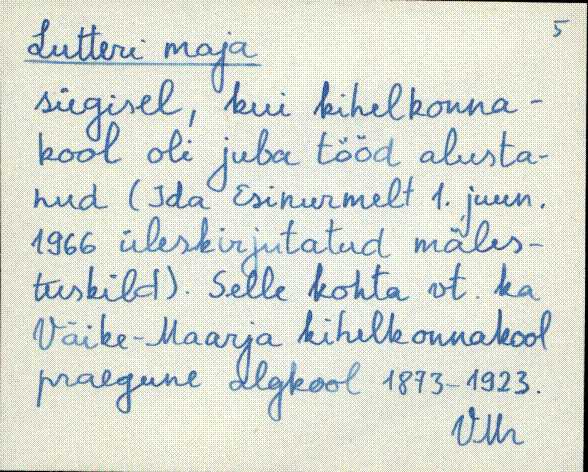 5
Lutteri maja
sügisel, kui kihelkonna-
kool oli juba tööd alusta-
nud (Ida Esinurmelt 1. juun.
1966 üleskirjutatud mäles-
tuskild). Selle kohta vt. ka
Väike-Maarja kihelkonnakool
praegune algkool 1873-1923.